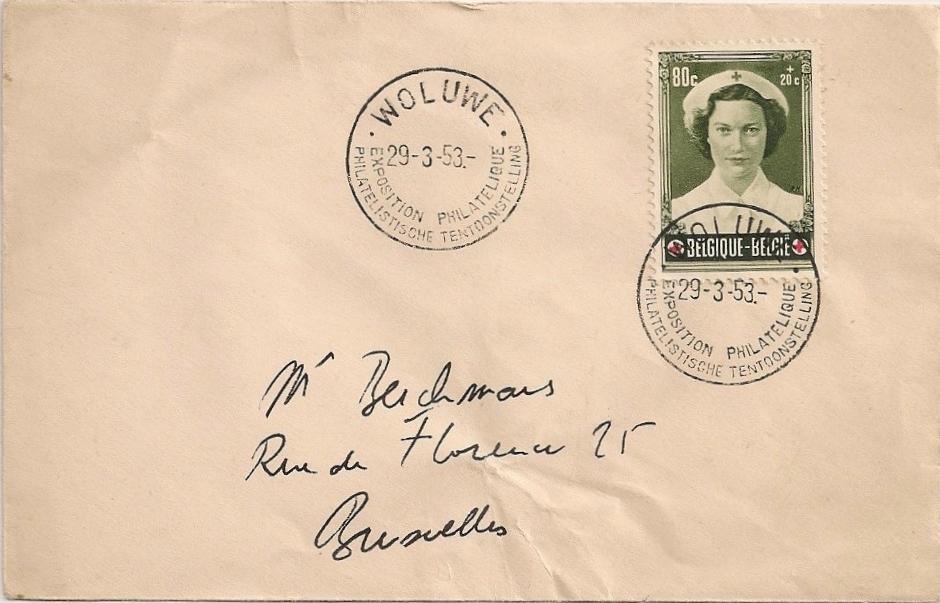 WOLUWE
29-3-53.-
EXPOSITION PHILATELIQUE
PHILATELISTISCHE TENTOONSTELLING
80c
+
20c
BELGIQUE-BELGIË
WOLUWE
29-3-53.-
EXPOSITION PHILATELIQUE
PHILATELISTISCHE TENTOONSTELLING
Mr Berchmans
Rue de Florence 25
Bruxelles